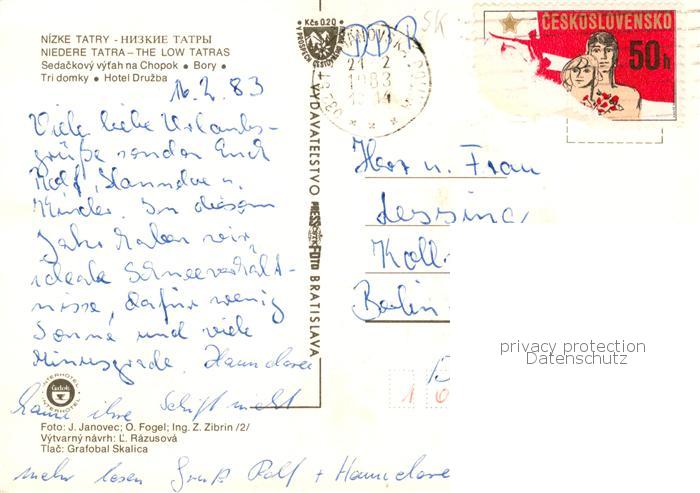 NÍZKE TATRY - НИЗКИЕ ТАТРЫ
NIEDERE TATRA – THE LOW TATRAS
Sedačkový výťah na Chopok • Bory •
Tri domky • Hotel Družba
16.2.83
Viele liebe Urlaubs-
grüße senden Euch
Rolf, Hannelore u.
Kinder. In diesem
Jahr haben wir
ideale Schneeverhält-
nisse, dafür wenig
Sonne und viele
Minusgrade. Hannelore
kann ihre Schrift nicht
mehr lesen Gruß Rolf + Hannelore
INTERHOTEL
Čedok
INTERHOTEL
Foto: J. Janovec; O. Fogel; Ing. Z. Zibrin /2/
Výtvarný návrh: Ľ. Rázusová
Tlač: Grafobal Skalica
Kčs 0.20
VYDAVATEĽSTVO PRESSFOTO BRATISLAVA
DDR
SK
21 2
1983
14
ČESKOSLOVENSKO
50h
Herr u. Frau
Lessing
Koll
Berlin
1 0
privacy protection
Datenschutz